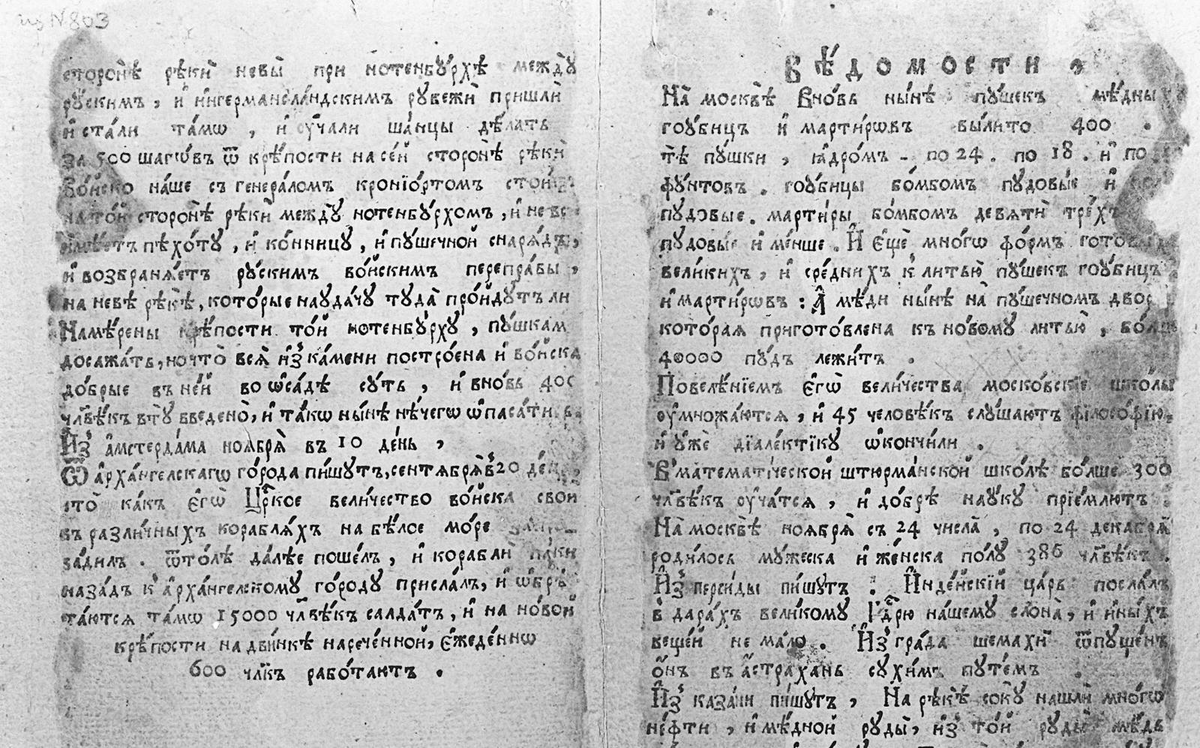 из N 803
сторонѣ рѣки невы при нотенбурхѣ между
рускимъ, и ингерманландскимъ рубежи пришли
и стали тамѡ , и ѹчали шанцы дѣлать
за 500 шагѡвъ ѿ крѣпости на сей сторонѣ рѣки
войско наше съ генераломъ кронїортомъ
на той сторонѣ рѣки между нотенбурхомъ, и не
имѣетъ пѣхоту, и конницу, и пушечной снарядъ,
и возбраняетъ рускимъ войскимъ переправы ,
на невѣ рѣкѣ, которые наудачу туда пройдутъ ли
Намѣрены крѣпости той нотенбурху , пушкам
досажать, но что вся из камени построена и войска
добрые въ ней во ѡсадѣ суть , и вновь 400
члвѣкъ вту введено, и такѡ нынѣ нѣчегѡ ѡпасати
Из амстердама ноября въ 10 день ,
Ѿ архангелскагѡ города пишутъ, сентября в 20
что какъ егѡ Цркое величество войска свои
въ различныхъ корабляхъ на бѣлое море
задилъ. ѿтолѣ далѣе пошелъ, и корабли паки
назадъ к архангелскому городу прислалъ, и ѡбрѣ
таются тамѡ 15000 члвѣкъ салдатъ, и на новой
крѣпости на двинкѣ нареченной, ежеденнѡ
600 члкъ работаютъ .
Вѣдомости ,
На москвѣ вновь нынѣ пушекъ мѣдны
гоубицъ и мартирѡвъ вылито 400 .
тѣ пушки , ядромъ - по 24 . по 18 . и по
фунтовъ . гоубицы бомбомъ пудовые и
пудовые . мартиры бомбомъ девяти трехъ
пудовые и менше . И еще многѡ формъ готовыхъ
великихъ , и среднихъ к литью пушекъ гоубицъ
и мартирѡвъ : А мѣди нынѣ на пушечномъ двор
которая приготовлена къ новому литью , болше
40000 пудъ лежитъ .
Повелѣнїемъ егѡ величества московскїе школы
оумножаются , и 45 человѣкъ слушаютъ фїлософїю,
и уже дїалектїку ѡкончили .
В математїческой штюрманской школѣ болше 300
члвѣкъ оучатся , и добрѣ науку прїемлютъ .
На москвѣ ноября съ 24 числа , по 24 декабря
родилось мужеска и женска полу 386 члвѣкъ .
Из персиды пишутъ : Индейскїй царь послалъ
в дарахъ великому Гдрю нашему слона , и иныхъ
вещей не мало . Из града шемахи ѿпущенъ
онъ въ астрахань сухимъ путемъ .
Из казани пишутъ , На рѣкѣ соку нашли многѡ
нефти , и мѣдной руды , из той руды мѣдь